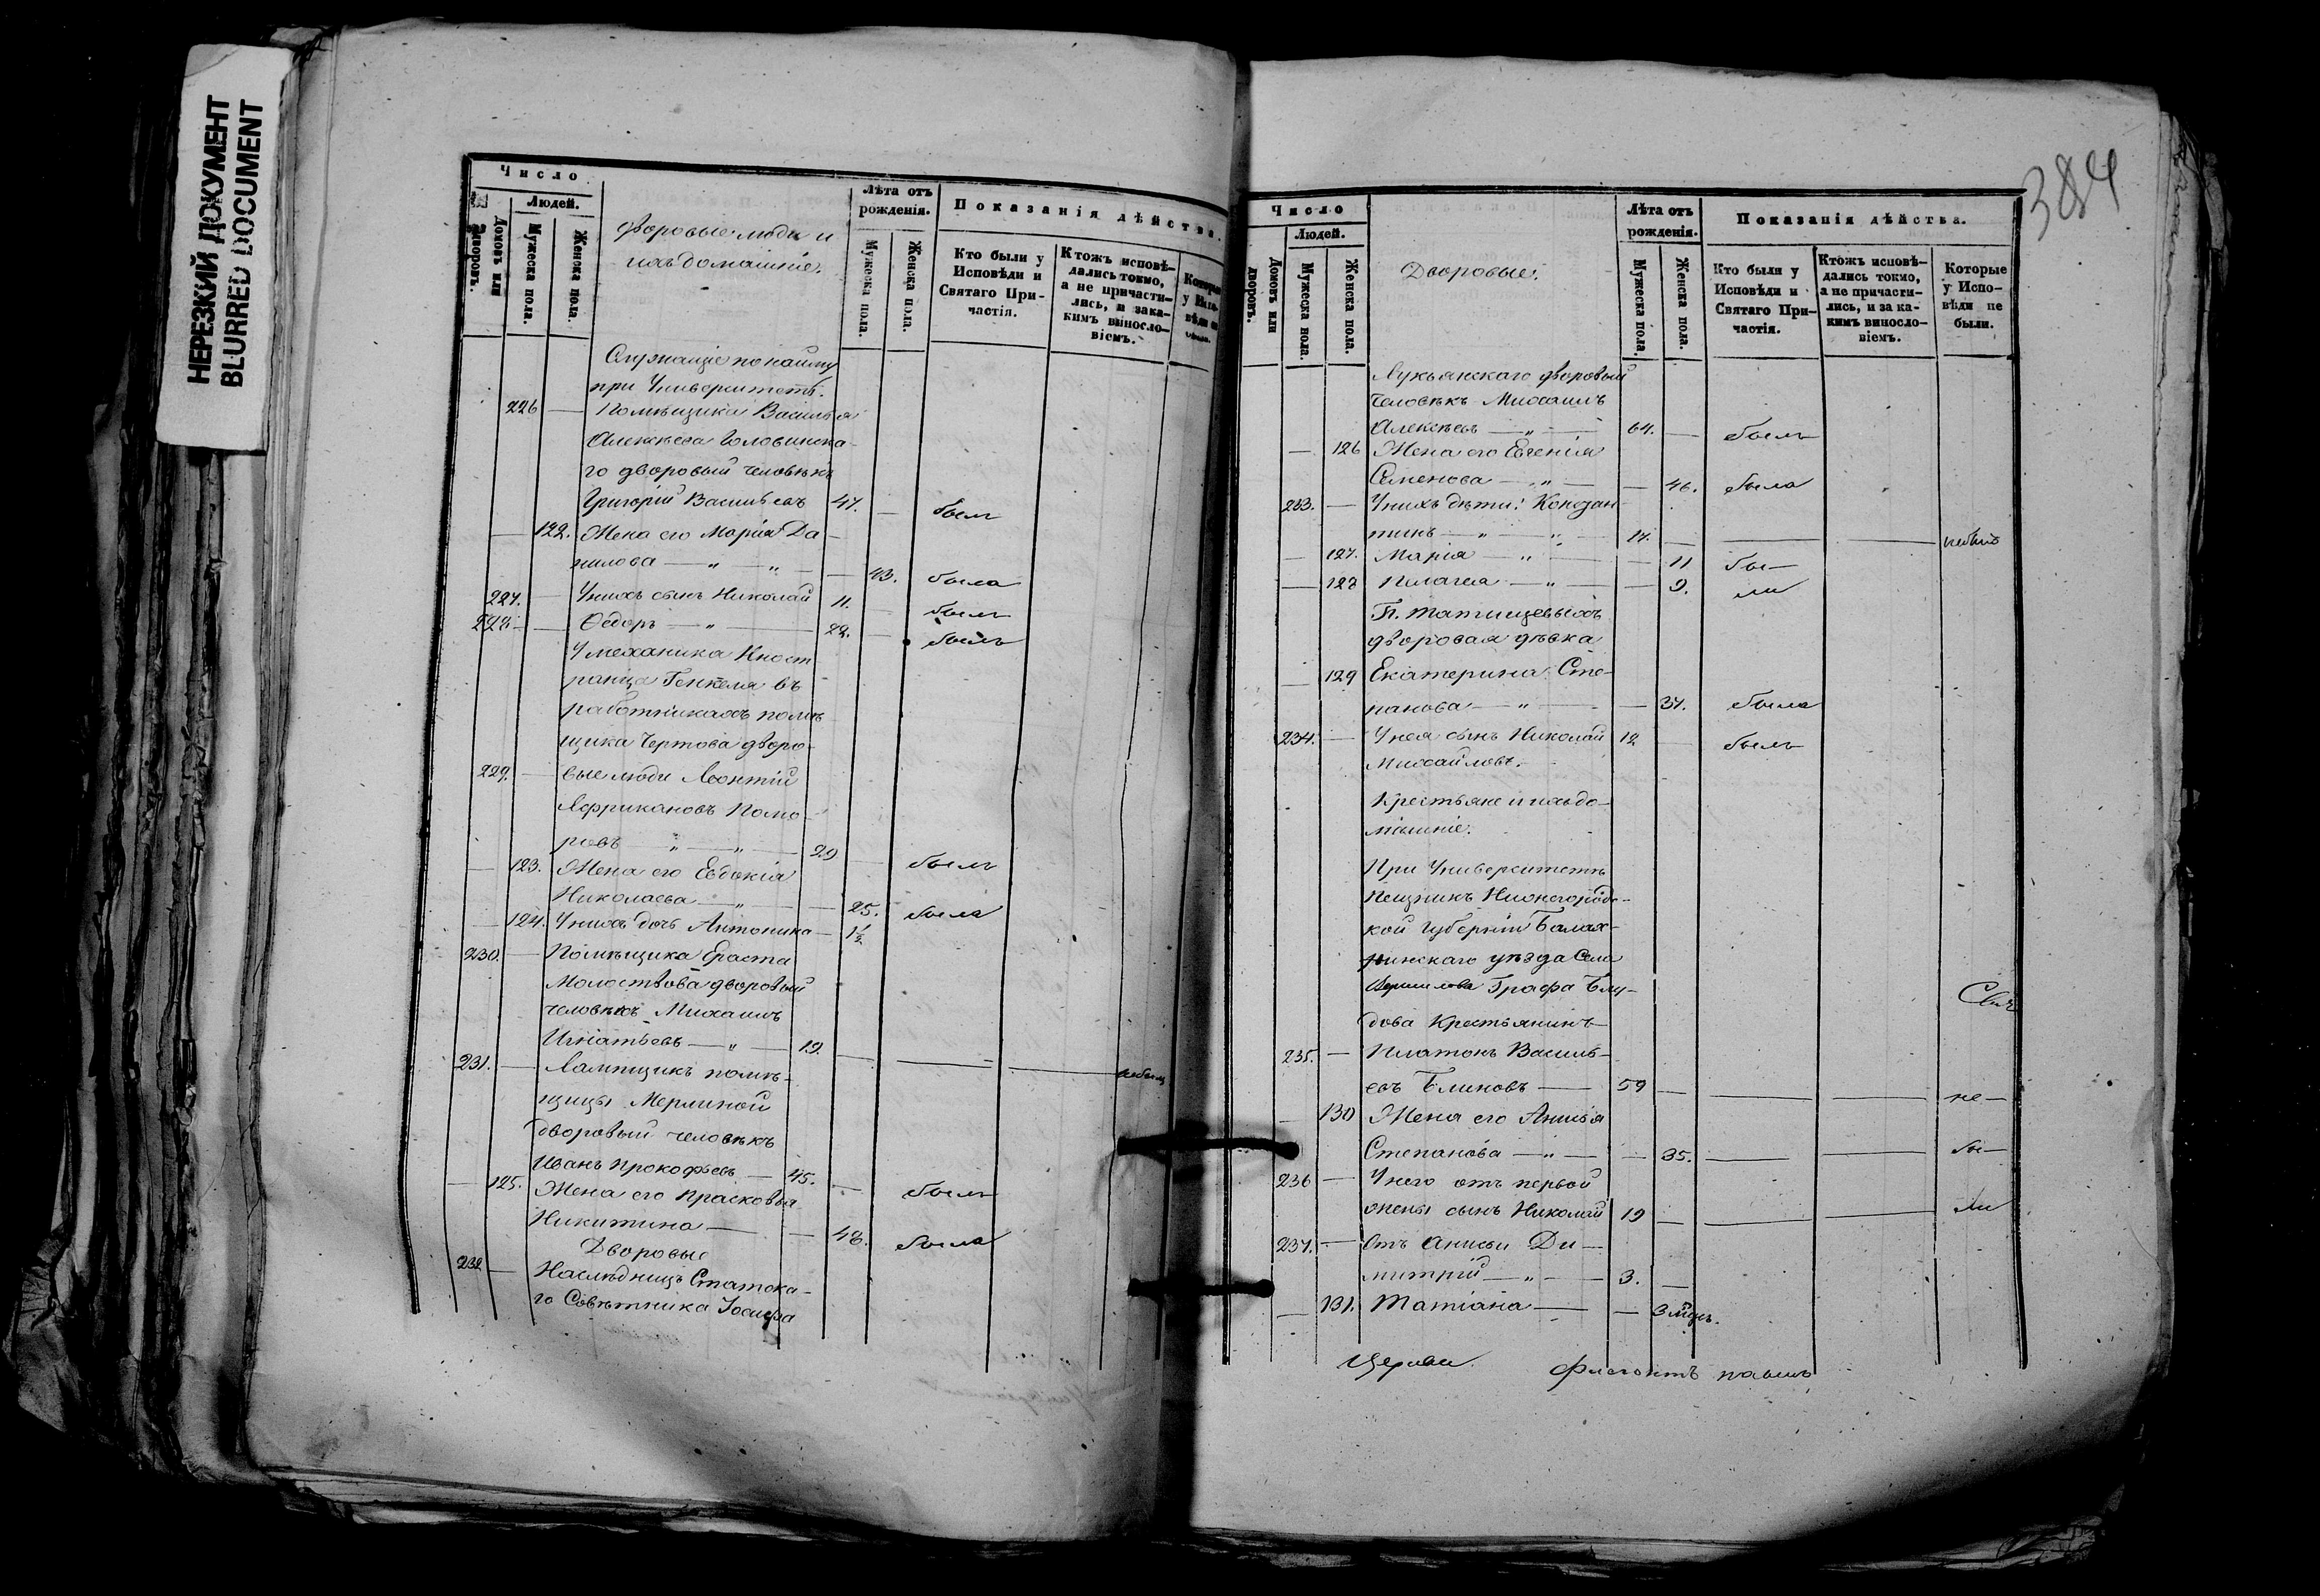 НЕРЕЗКИЙ ДОКУМЕНТ
BLURRED DOCUMENT
Число
Людей.
Домовъ или дворовъ.
Мужеска пола.
Женска пола.
Дворовые люди и
ихъ домашніе.
Лѣта отъ
рожденія.
Мужеска пола.
Женска пола.
Показанія дѣйства.
Кто были у
Исповѣди и
Святаго При-
частія.
Ктожъ исповѣ-
дались токмо,
а не причасти-
лись, и зака-
кимъ винос-ло-
віемъ.
Которые
у Испо-
вѣди не
были.
Служащіе по найму
при Университетѣ.
226 — Помѣщика Василья
Алексѣева Головинска-
го дворовый человѣкъ
Григорій Васильевъ 47. — былъ
— 122. Жена его Марія Да-
нилова — „ — „ — — 43. была
227. — У нихъ сынъ Николай 11. — былъ
228 — — Ѳедоръ — „ — 22. — былъ
У механика Иност
ранца Генкеля въ
работникахъ помѣ
щика Чертова дворо-
229. — вые люди Леонтій
Африкановъ Помо-
ровъ — „ — „ — 29 — былъ
— 123. Жена его Евдокія
Николаева — „ — — 25. была
— 124. У нихъ дочь Антонина — 1½
230. — Помѣщика Ераста
Молоствова дворовый
человѣкъ Михаилъ
Игнатьевъ — „ — 19. — — — небылъ
231. — Лампщикъ помѣ-
щицы Мерлиной
дворовый человѣкъ
Иванъ Прокофьевъ — 45. — былъ
— 125. Жена его Прасковья
Никитина — — 48. была
Дворовые
232 — Наслѣдницъ Статска-
го Совѣтника Іосифа
384
Число
Людей.
Домовъ или дворовъ.
Мужеска пола.
Женска пола.
Дворовые.
Лѣта отъ
рожденія.
Мужеска пола.
Женска пола.
Показанія дѣйства.
Кто были у
Исповѣди и
Святаго При-
частія.
Ктожъ исповѣ-
дались токмо,
а не причасти-
лись, и за ка-
кимъ винос-ло-
віемъ.
Которые
у Испо-
вѣди не
были.
Лукьянскаго дворовый
человѣкъ Михаилъ
Алексѣевъ — „ — 64. — былъ
— 126 Жена его Евгенія
Семенова — „ — — 46. была
233. — У нихъ дѣти: Констан-
тинъ — „ — „ — 14. — — — небылъ
— 127. Марія — „ — — 11 бы-
— 128 Пелагея — „ — — 9. ли
Гп. Татищевыхъ
дворовая дѣвка
— 129 Екатерина Сте-
панова — „ — — 37. была
234. — У нея сынъ Николай 12 — былъ
Михайловъ.
Крестьяне и ихъ до-
машніе.
При Университетѣ
Пещникъ Нижегородс-
кой Губерніи Балах-
нинскаго уѣзда Села
Графа Блу-
дова Крестьянинъ
235. — Платонъ Василь-
евъ Блиновъ — 59 — — — не-
— 130 Жена его Анисья
Степанова — „ — — 35. — — бы-
236 — У него отъ первой
жены сынъ Николай 19 — — — ли
237. — Отъ Анисьи Ди-
митрій — „ — 3. —
— 131. Татіана — — 3 мѣс.
Церкви